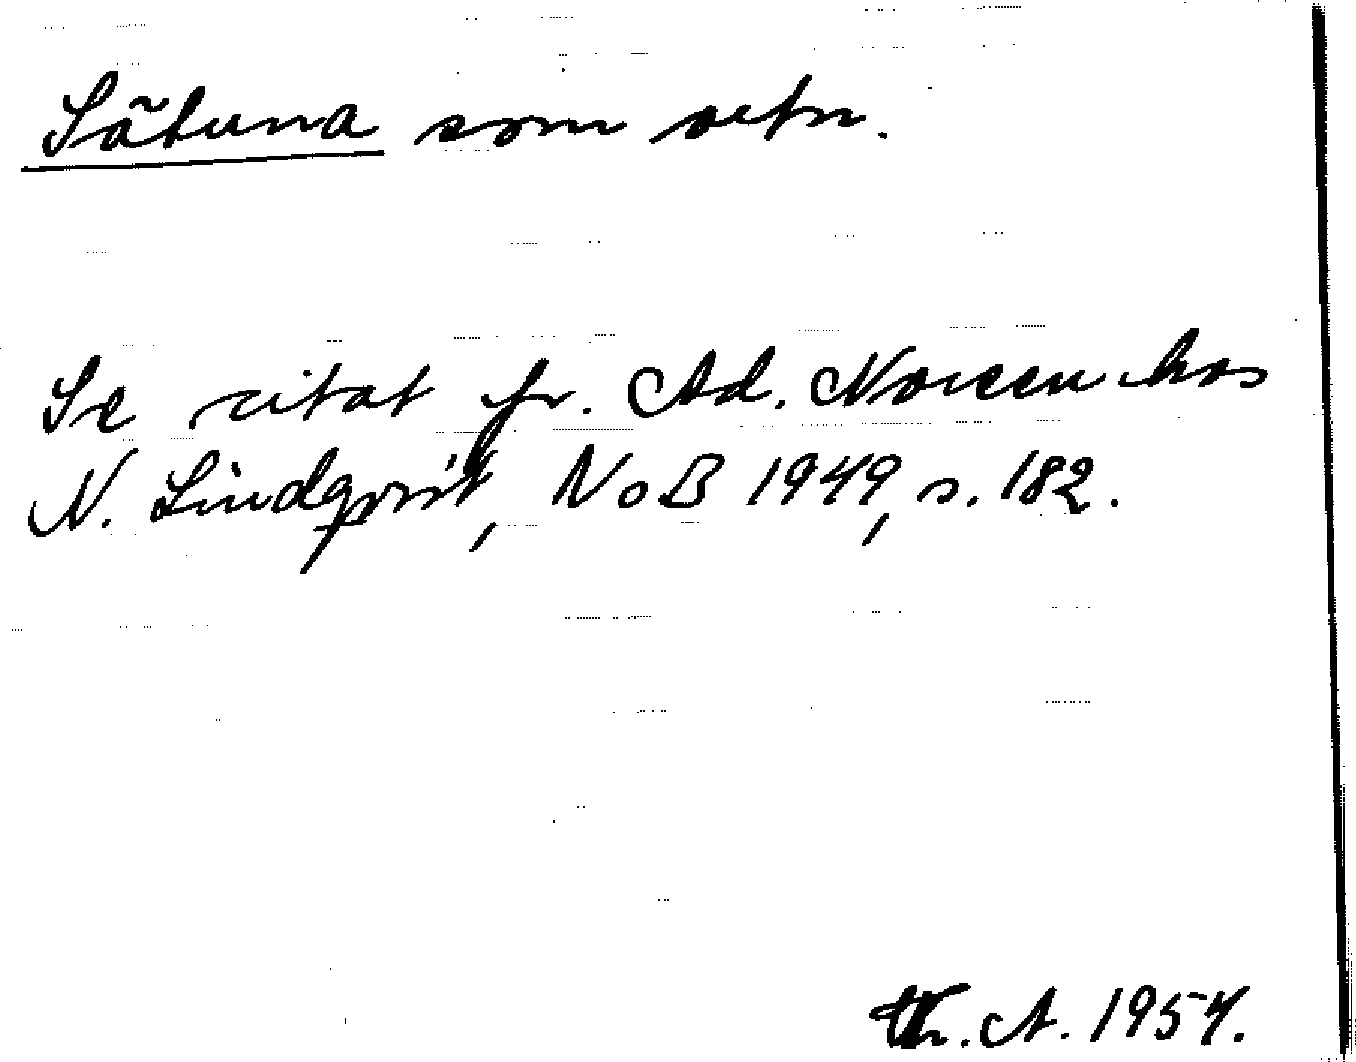 Sätuna som ortn.
Se citat fr. Ad. Noreen hos
N. Lindqvist, NoB 1949, s. 182.
Th. A. 1954.